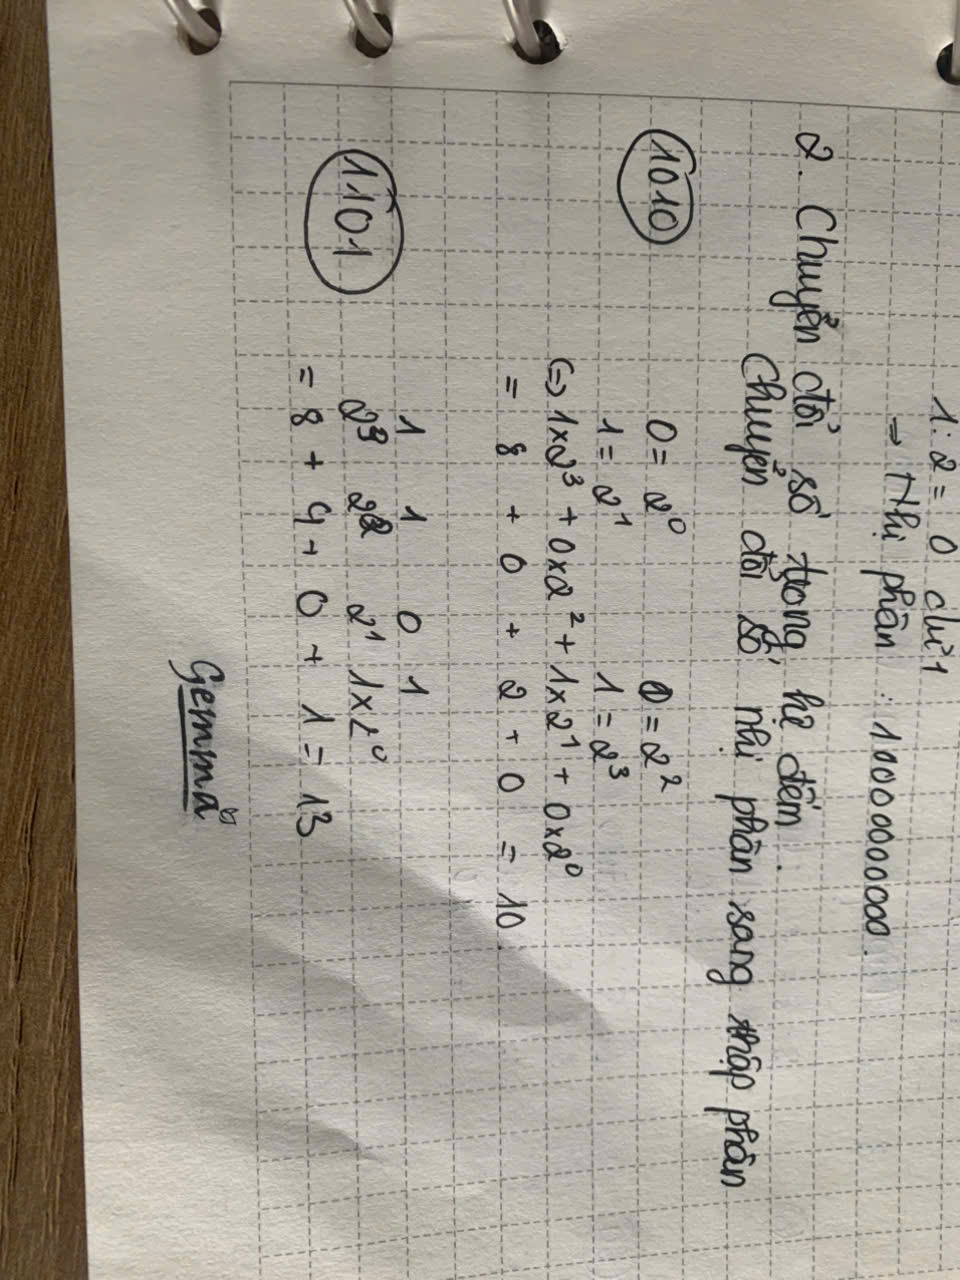 1:2 = 0 dư 1
→ Nhị phân : 10000000000.
2. Chuyển đổi số trong hệ đếm.
Chuyển đổi số nhị phân sang thập phân
1010
0 = 2⁰ 0 = 2²
1 = 2¹ 1 = 2³
(=) 1x2³ + 0x2² + 1x2¹ + 0x2⁰
= 8 + 0 + 2 + 0 = 10
1101
1 1 0 1
2³ 2² 2¹ 1x2⁰
= 8 + 4 + 0 + 1 = 13
Gemma